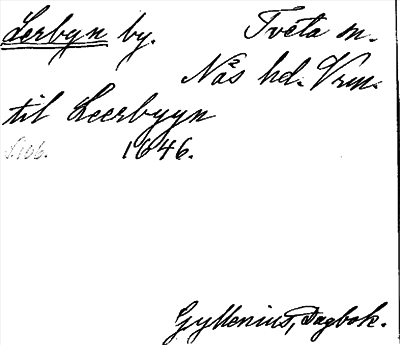 Lerbyn by. Tveta sn.
Näs hd. Vrm.
til Leerbyyn
1646.
Gyllenius, Dagbok.